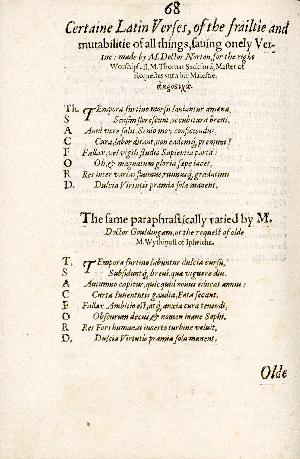 68
Certaine Latin Verses, of the frailtie and
mutabilitie of all things, sauing onely Ver-
tue: made by M. Doctor Norton, for the right
Worshipfull, M. Thomas Sackford, Master of
Requestes vnto her Maiestie.
Th. Tempora furtino morsu laniantur amæna,
S
A Aurea vere salis, Senio mox conficiendus.
C Cura, labor ditant, non eadem premunt?
F Fallax, vel vigili studio Sapientia parta:
O Oh, & magnatum gloria sæpe iacet,
R Res inter varias fluimus, ruimusq, gradatim:
D. Dulcia Virtutis præmia sola manent.
The same paraphrastically varied by M.
Doctor Gouldingam, at the request of olde
M. Wythipoll of Ipswiche.
T. Tempora furtiuo labuntur dulcia cursu,
S Subsidunt, breui, quæ viguere diu.
A Autumno capitur, quicquid nouus educat annus:
C Curta Iuuentutis gaudia, Fata secant.
E Fallax Ambitio est, atq, anxia cura tenendi,
O Obscurum decus, & nomen inane Sophi.
R Res Fors humanas incerto turbine voluit,
D. Dulcia Virtutis præmia sola manent.
Olde